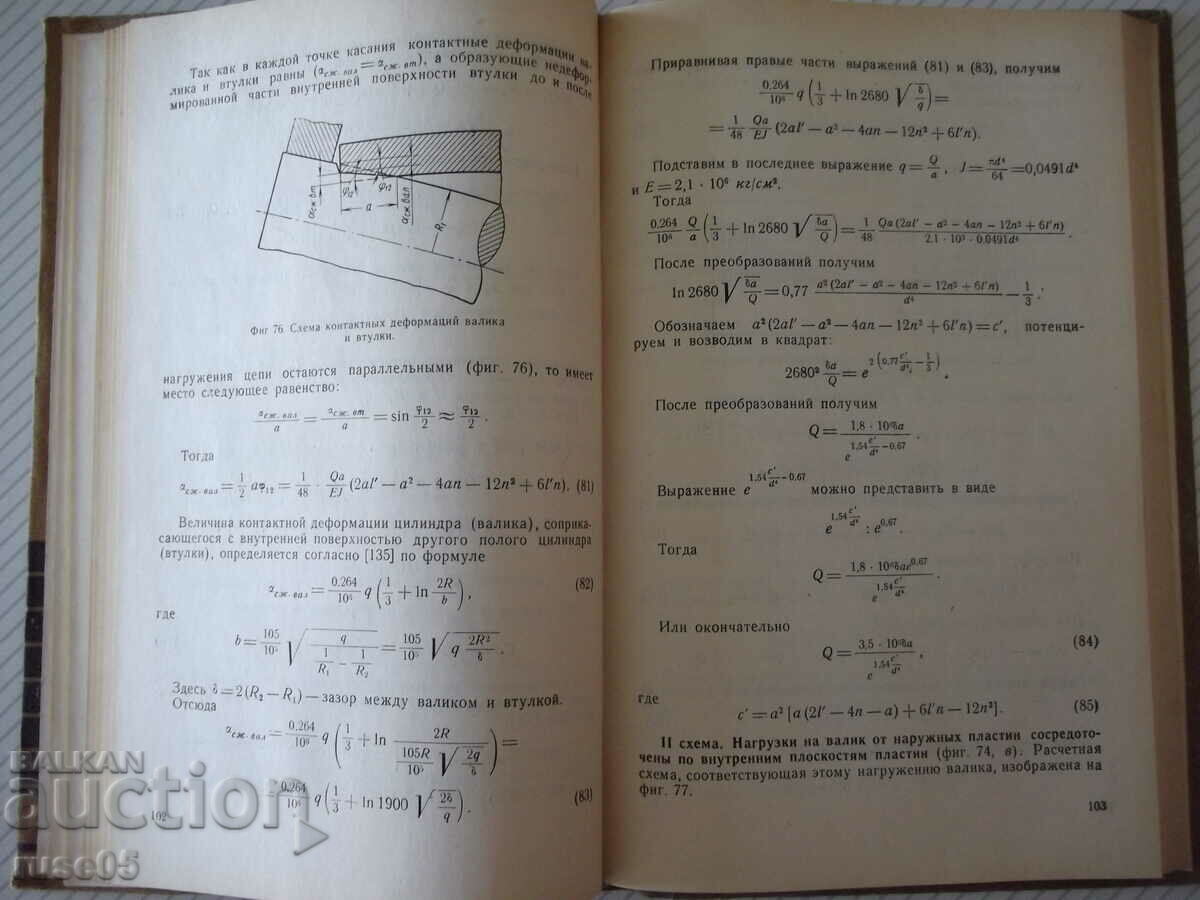 Так как в каждой точке касания контактные деформации ва-
лика и втулки равны (α сж. вал = α сж. вт), а образующие недефор-
мированной части внутренней поверхности втулки до и после
α сж вт
φ12
φ12
a
α сж вал
R1
Фиг 76 Схема контактных деформаций валика
и втулки.
нагружения цепи остаются параллельными (фиг. 76), то имеет
место следующее равенство:
α сж. вал / a = α сж. вт / a = sin φ12/2 ≈ φ12/2 .
Тогда
α сж. вал = 1/2 aφ12 = 1/48 · Qa/EJ (2al′ — a² — 4an — 12n² + 6l′n). (81)
Величина контактной деформации цилиндра (валика), соприка-
сающегося с внутренней поверхностью другого полого цилиндра
(втулки), определяется согласно [135] по формуле
α сж. вал = 0.264/10⁶ q (1/3 + ln 2R/b), (82)
где
b = 105/10⁵ √(q / (1/R₁ — 1/R₂)) = 105/10⁵ √(q 2R²/δ).
Здесь δ = 2 (R₂ — R₁) — зазор между валиком и втулкой.
Отсюда
α сж. вал = 0.264/10⁶ q (1/3 + ln 2R / (105R/10⁵ √(2q/δ))) =
= 0,264/10⁶ q (1/3 + ln 1900 √(2δ/q)). (83)
102
Приравнивая правые части выражений (81) и (83), получим
0,264/10⁶ q (1/3 + ln 2680 √(δ/q)) =
= 1/48 Qa/EJ (2al′ — a² — 4an — 12n² + 6l′n).
Подставим в последнее выражение q = Q/a , J = πd⁴/64 = 0,0491d⁴
и E = 2,1 · 10⁶ кг/см².
Тогда
0,264/10⁶ Q/a (1/3 + ln 2680 √(δa/Q)) = 1/48 Qa (2al′ — a² — 4an — 12n² + 6l′n) / 2.1 · 10⁵ · 0,0491d⁴ .
После преобразований получим
ln 2680 √(δa/Q) = 0,77 a² (2al′ — a² — 4an — 12n² + 6l′n) / d⁴ — 1/3 .
Обозначаем a² (2al′ — a² — 4an — 12n² + 6l′n) = c′, потенци-
руем и возводим в квадрат:
2680² δa/Q = e^2(0,77 c′/d⁴ — 1/3) .
После преобразований получим
Q = 1,8 · 10⁶δa / e^(1,54 c′/d⁴ — 0,67) .
Выражение e^(1,54 c′/d⁴ — 0,67) можно представить в виде
e^(1,54 c′/d⁴) : e^0,67.
Тогда
Q = 1,8 · 10⁶δae^0,67 / e^(1,54 c′/d⁴) .
Или окончательно
Q = 3,5 · 10⁶δa / e^(1,54 c′/d⁴) , (84)
где
c′ = a² [a (2l′ — 4n — a) + 6l′n — 12n²]. (85)
II схема. Нагрузки на валик от наружных пластин сосредото-
чены по внутренним плоскостям пластин (фиг. 74, в). Расчетная
схема, соответствующая этому нагружению валика, изображена на
фиг. 77.
103
BALKAN
auction
ruse05